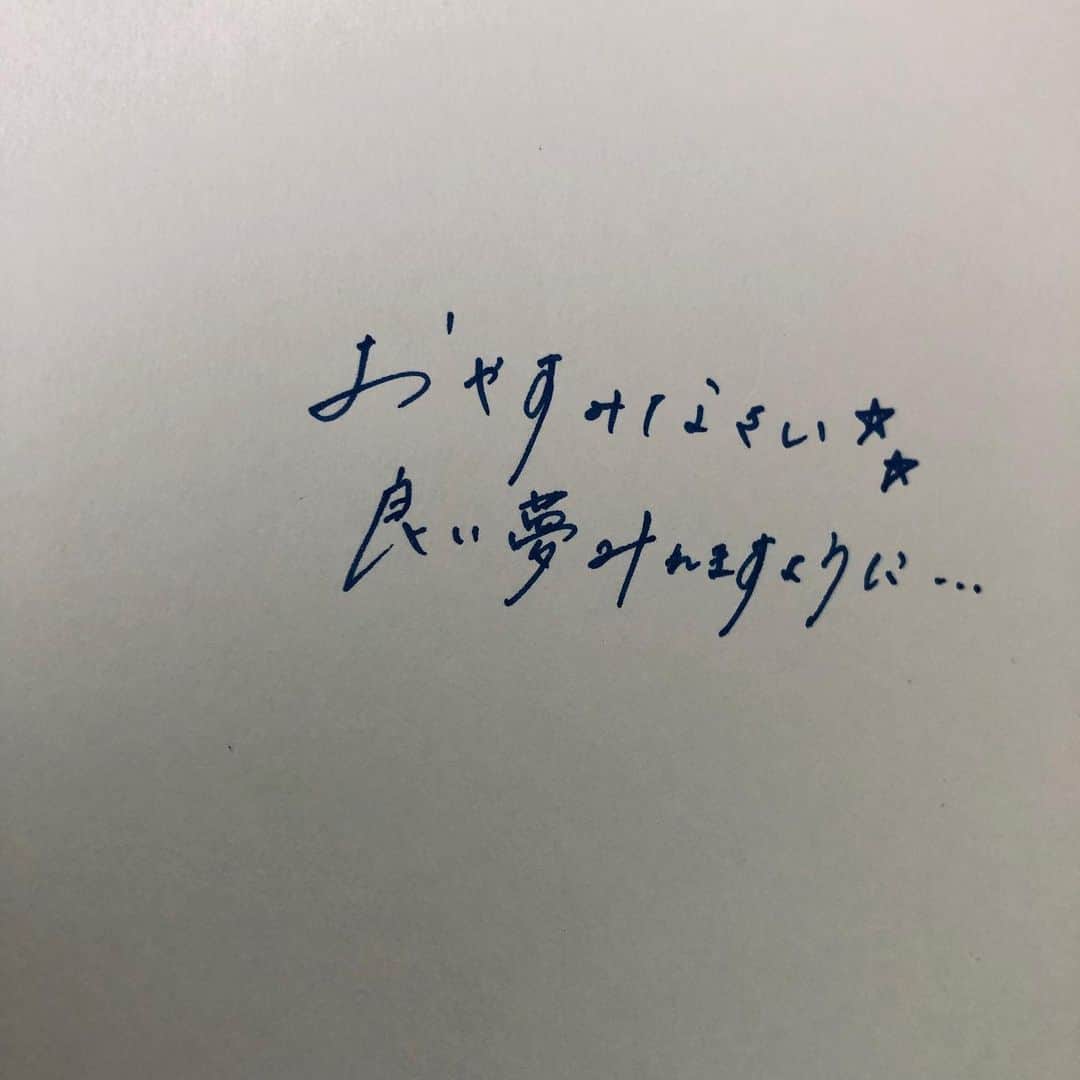 おやすみなさい☆☆
良い夢みれますように...